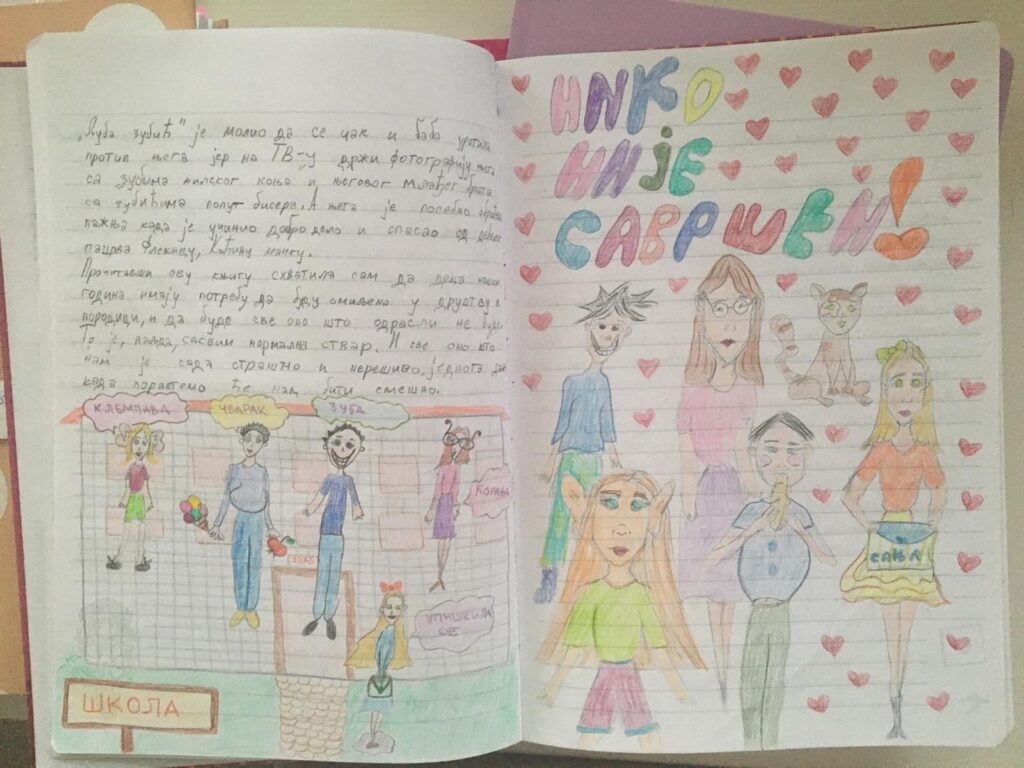 „Луба зубић" је молио да се чак и баба уротила
против њега јер на ТВ-у држи фотографију њега
са зубима нилског коња" и његовог млађег брата
са зубићима попут бисера. А њега је посебно
пажња када је учинио добро дело и спасао од
пацова Флекицу, Каћину мачку.
Прочитавши ову књигу схватила сам да деца наших
година имају потребу да буду омиљена у друштву и
породици, и да буде све оно што одрасли не буде
То је, ваљда, сасвим нормална ствар. И све оно што
нам је сада страшно и нерешиво, једнога дана
када порастемо ће нам бити смешно.
КЛЕМПАВА
ЧВАРАК
ЗУБА
ЋОРАВА
УПИШКИЛА
СЕ
ШКОЛА
НИКО
НИЈЕ
САВРШЕН!
САЊА